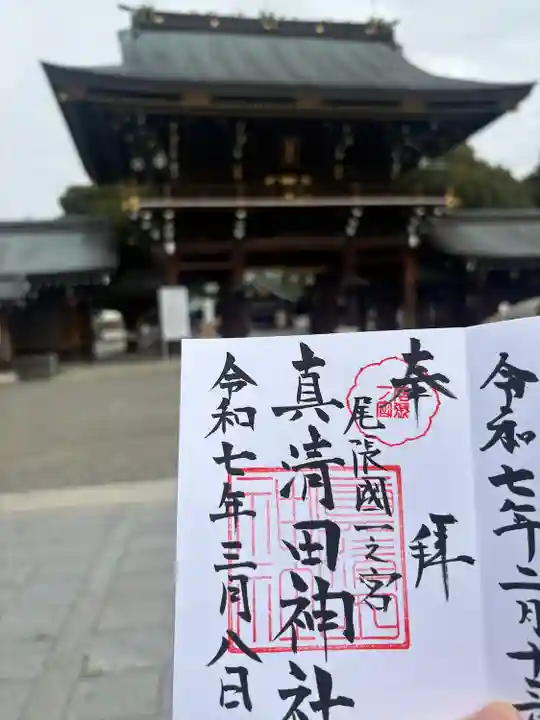 令和七年二月十三
奉拝
尾張國一之宮
真清田神社
令和七年三月八日